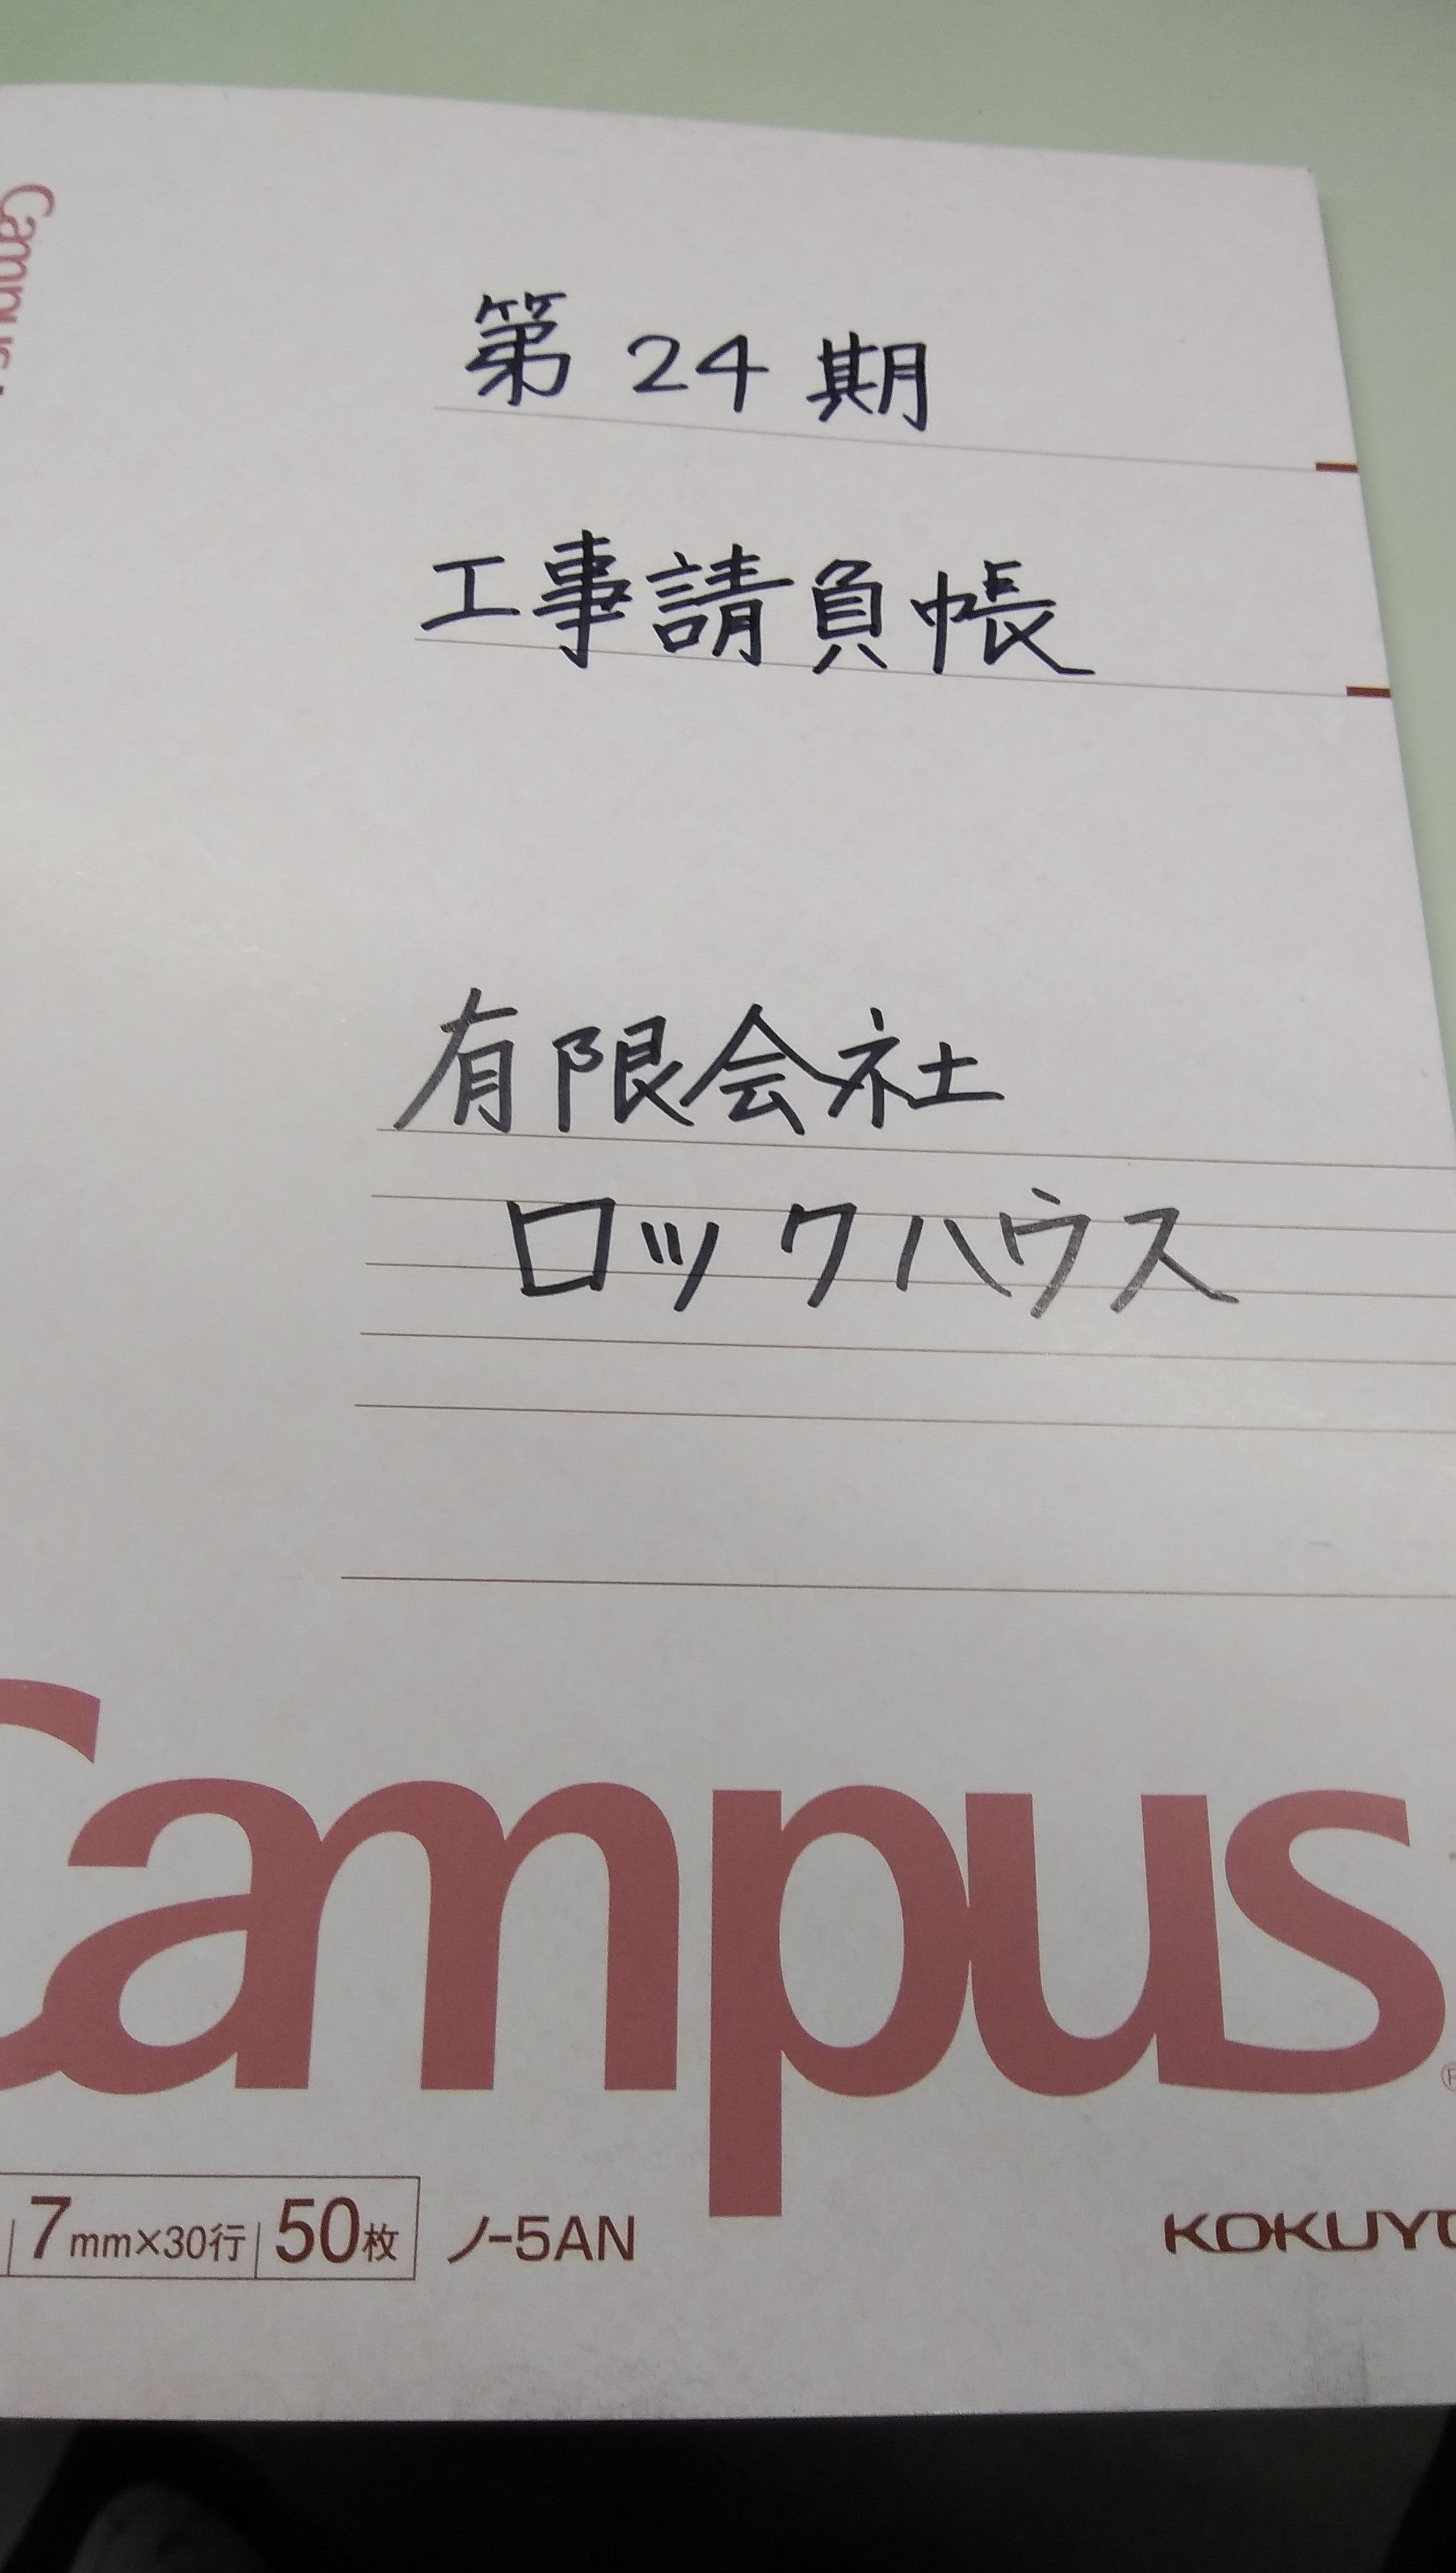 Campus
第24期
工事請負帳
有限会社
ロックハウス
Campus
7mm×30行 50枚 ノ-5AN
KOKUYO